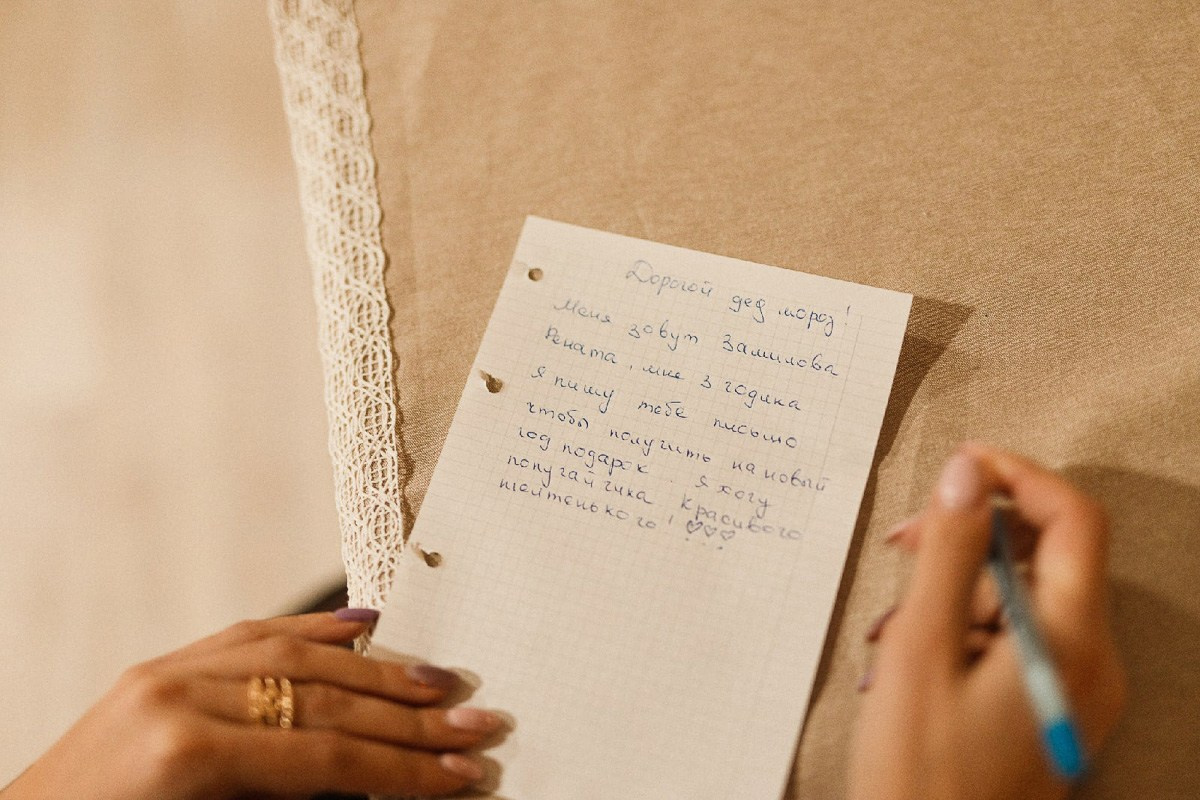 Дорогой дед мороз!
Меня зовут Замилова
Рената, мне 3 годика
Я пишу тебе письмо
чтобы получить на новый
год подарок. Я хочу
попугайчика красивого
желтенького! ♡♡♡